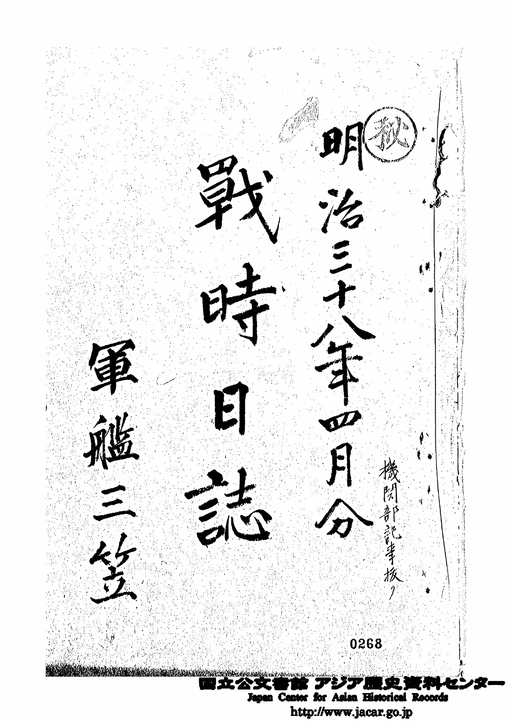 秘
明治三十八年四月分
機関部記事抜
戰時日誌
軍艦三笠
0268
国立公文書館 アジア歴史資料センター
Japan Center for Asian Historical Records
http://www.jacar.go.jp